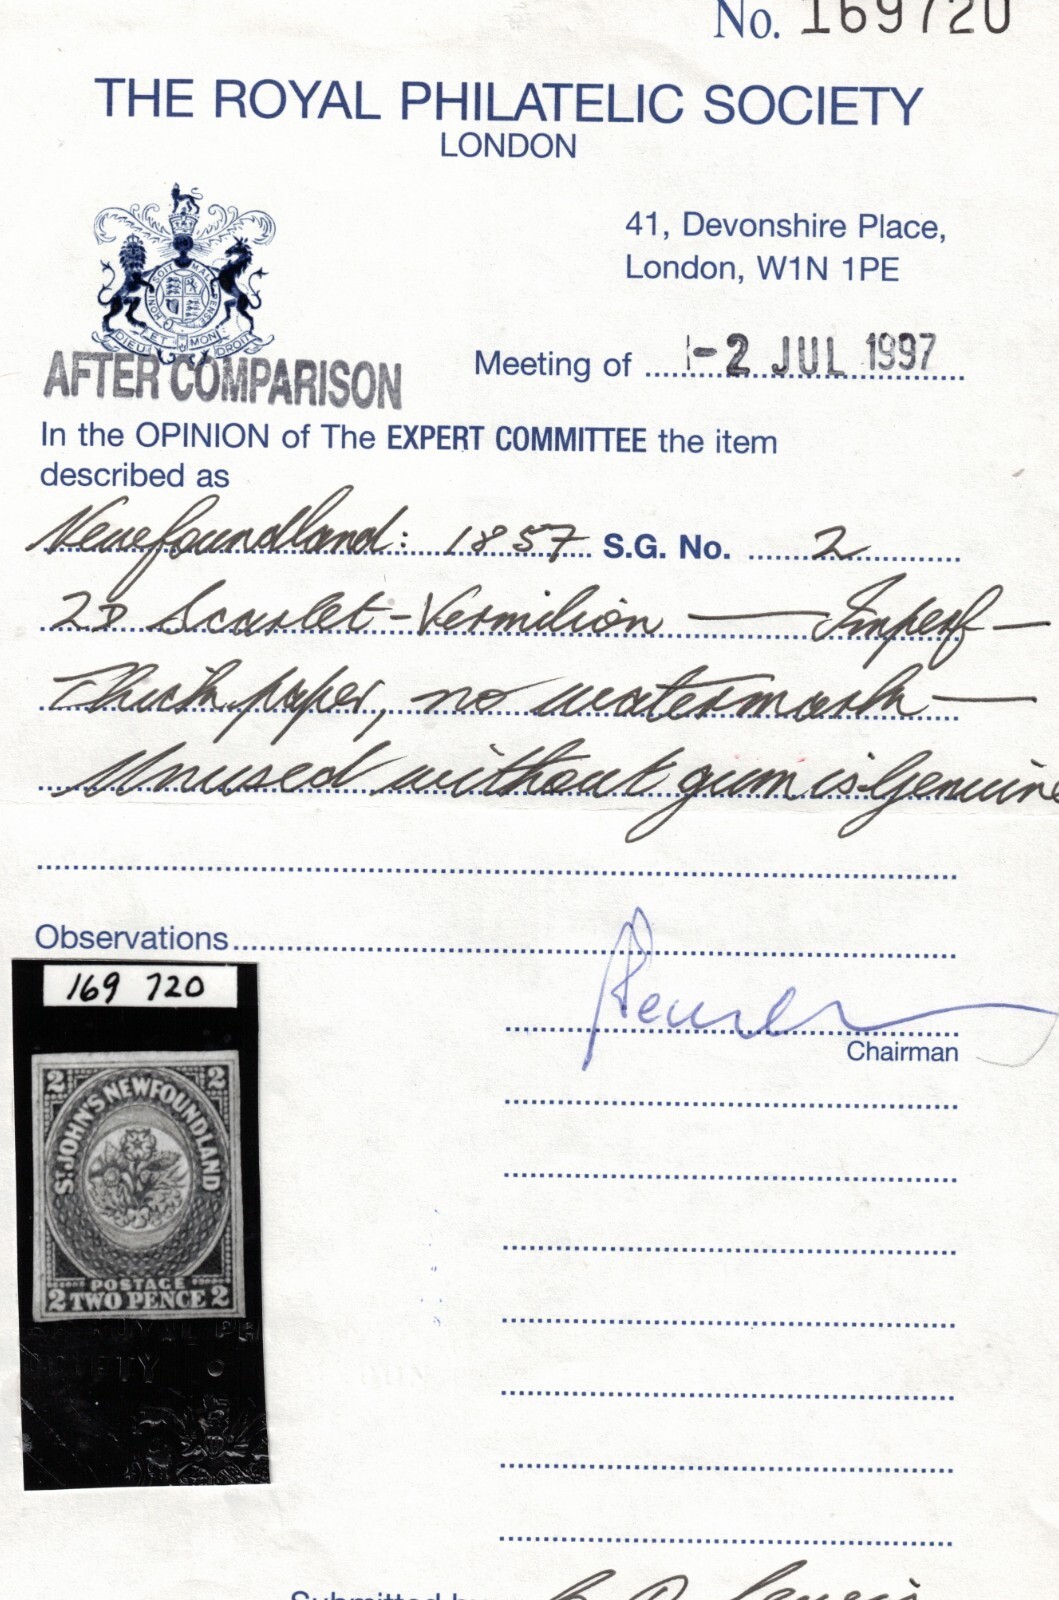 No. 169720
THE ROYAL PHILATELIC SOCIETY
LONDON
41, Devonshire Place,
London, W1N 1PE
HONI SOIT MAL PENSE
DIEU ET MON DROIT
AFTER COMPARISON
Meeting of -2 JUL 1997
In the OPINION of The EXPERT COMMITTEE the item
described as
Newfoundland: 1857 S.G. No. 2
2D Scarlet-Vermilion — Imperf —
Thick paper, no watermark —
Unused without gum is Genuine
Observations
Chairman
169 720
2 2
ST. JOHN'S NEWFOUNDLAND
POSTAGE
2 TWO PENCE 2
Submitted by